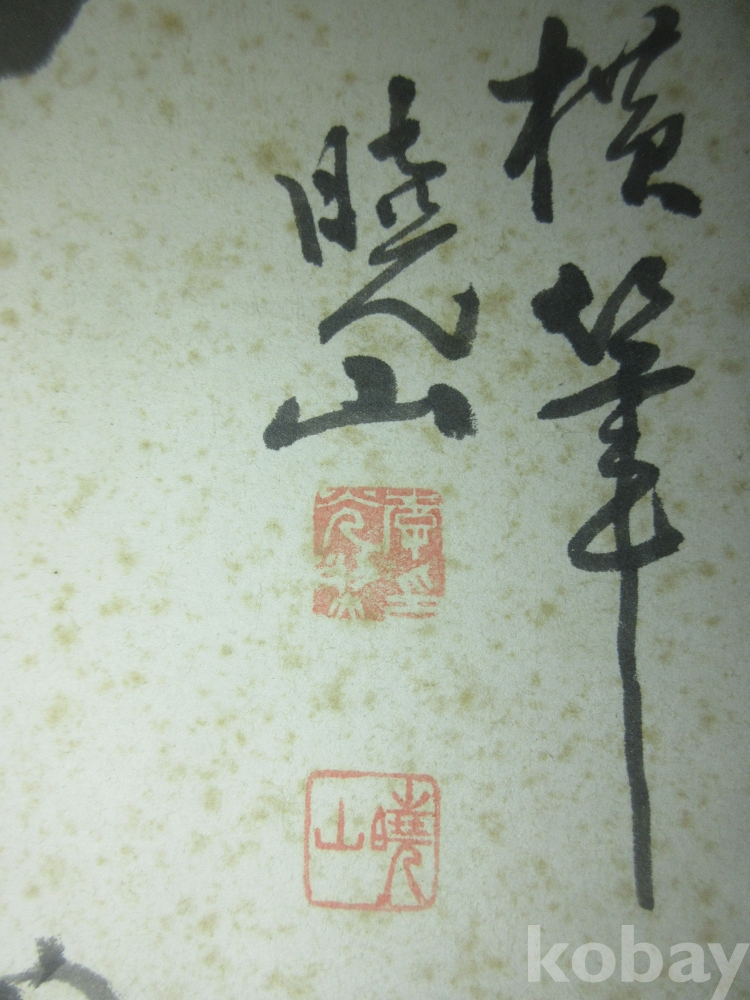 橫筆
曉山
曉山
kobay